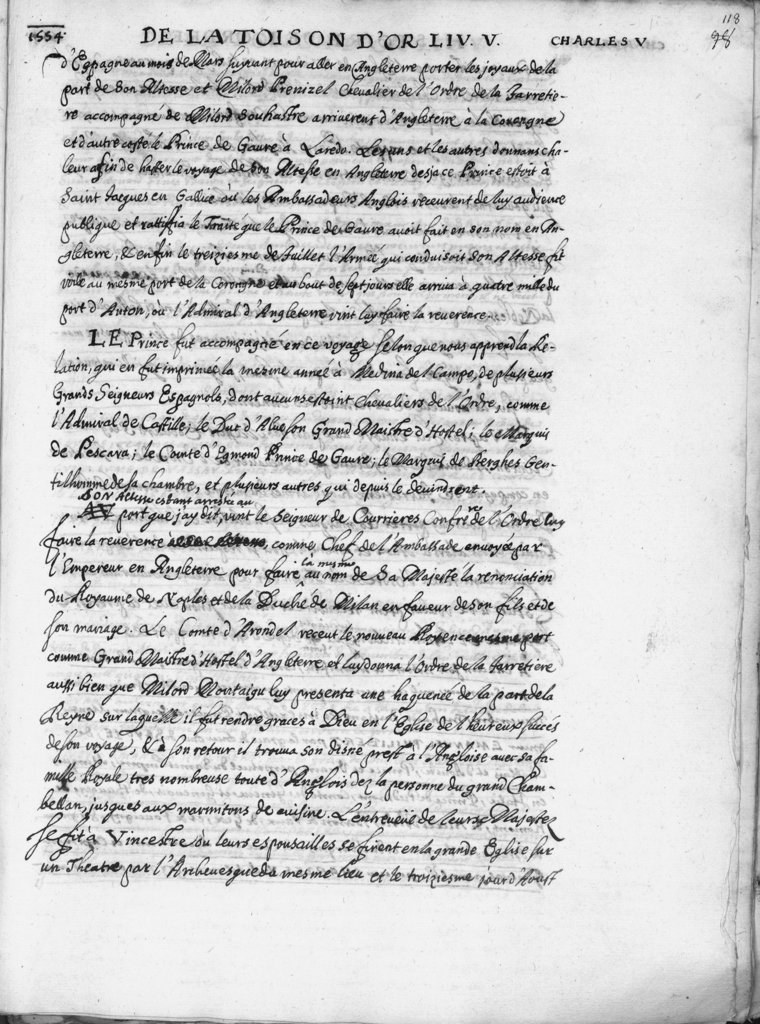 118
98
1554. DE LA TOISON D'OR LIV. V. CHARLES V.
d'Espagne au mois de Mars suivant pour aller en Angleterre porter les joyaux de la
part de Son Altesse et Milord Prenizel Chevalier de l'Ordre de la Jarretie-
re accompagné de Milord Souhastre arriverent d'Angleterre à la Corongne
et d'autre costé le Prince de Gavre à Laredo. Les uns et les autres donnans cha-
leur afin de haster le voyage de Son Altesse en Angleterre desja ce Prince estoit à
Saint Jacques en Gallice où les Ambassadeurs Anglois receurent de luy audience
publique et rattiffia le Traité que le Prince de Gavre avoit fait en son nom en An-
gleterre, & enfin le treiziesme de Juillet l'Armée qui conduisoit Son Altesse fit
voile au mesme port de la Corongne et au bout de sept jours elle arriva à quatre mille du
port d'Anton, où l'Admiral d'Angleterre vint luy faire la reverence.
LE Prince fut accompagné en ce voyage selon que nous apprend la Re-
lation, qui en fut imprimée la mesme année à Medina del Campo, de plusieurs
Grands Seigneurs Espagnols, dont aucuns estoint Chevaliers de l'Ordre, comme
l'Admiral de Castille; le Duc d'Alve son Grand Maistre d'Hostel; le Marquis
de Pescara; le Comte d'Egmond Prince de Gavre; le Marquis de Berghes Gen-
tilhomme de sa chambre, et plusieurs autres qui depuis le devindrent.
SON Altesse estant arrestée au
port que j'ay dit, vint le Seigneur de Courrieres Confre de l'Ordre luy
faire la reverence, comme Chef de l'Ambassade envoyée par
la mesme
l'Empereur en Angleterre pour faire au nom de Sa Majesté la renonciation
du Royaume de Naples et de la Duché de Milan en faveur de son fils et de
son mariage. Le Comte d'Arondel receut le nouveau Roy en ce mesme port
comme Grand Maistre d'Hostel d'Angleterre et luy donna l'Ordre de la Jarretiere
aussi bien que Milord Montaigu luy presenta une haquenée de la part de la
Reyne sur laquelle il fut rendre graces à Dieu en l'Eglise de l'heureux succés
de son voyage, & à son retour il trouva son disné prest à l'Angloise avec sa fa-
mille Royale tres nombreuse toute d'Anglois dez la personne du grand Cham-
bellan, jusques aux marmitons de cuisine. L'entreveüe de leurs Majestez
se fit à Vincestre où leurs espousailles se firent en la grande Eglise sur
un Theatre par l'Archevesque du mesme lieu et le troiziesme jour d'Aoust